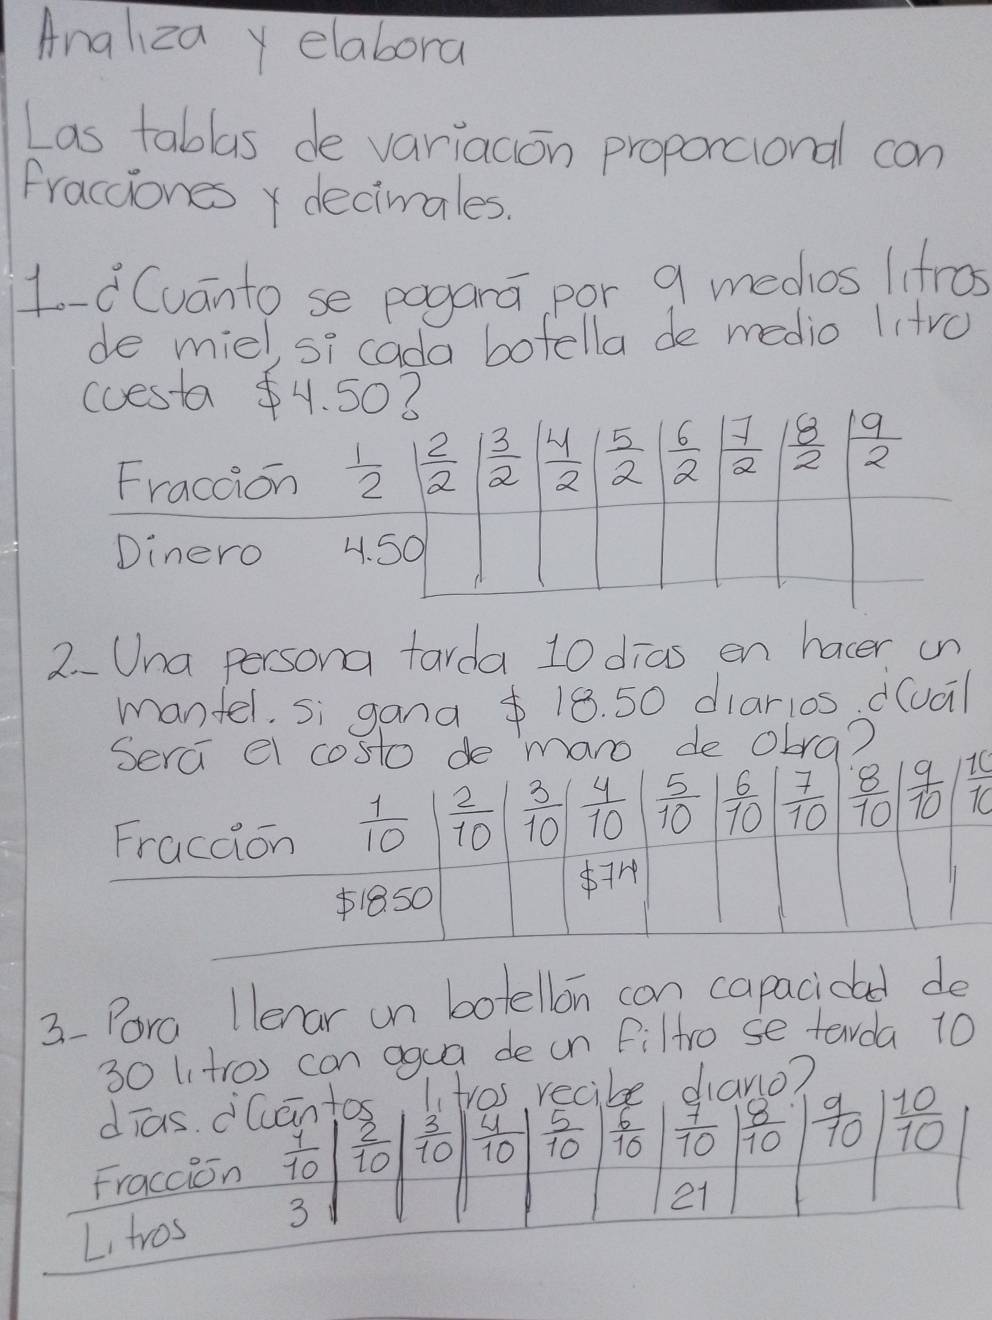 Analiza y elabora
Las tablas de variación proporcional con
Fracciones y decimales.
1.-¿Cuánto se pagará por 9 medios litros
de miel, si cada botella de medio litro
cuesta $4.50?
Fracción 1/2 2/2 3/2 4/2 5/2 6/2 7/2 8/2 9/2
Dinero 4.50
2.- Una persona tarda 10 días en hacer un
mantel. si gana $ 18.50 diarios. ¿Cuál
Será el costo de mano de obra?
Fracción 1/10 2/10 3/10 4/10 5/10 6/10 7/10 8/10 9/10 10/10
$18.50 $74
3.- Para llenar un botellón con capacidad de
30 litros con agua de un filtro se tarda 10
días. ¿Cuántos litros recibe diario?
Fracción 1/10 2/10 3/10 4/10 5/10 6/10 7/10 8/10 9/10 10/10
Litros 3 21